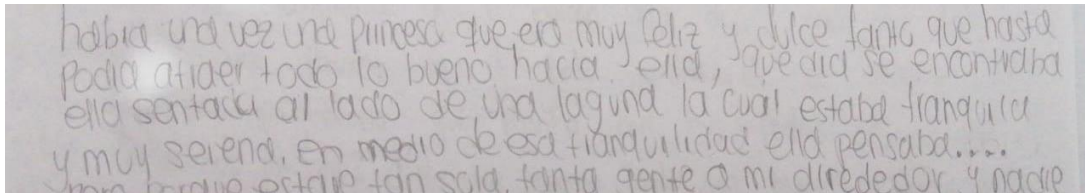 habia una vez una princesa que era muy feliz y dulce tanto que hasta
podia atraer todo lo bueno hacia ella, que dia se encontraba
ella sentada al lado de una laguna la cual estaba tranquila
y muy serena, en medio de esa tranquilidad ella pensaba....
porque estare tan sola, tanta gente a mi dirededor y nadie